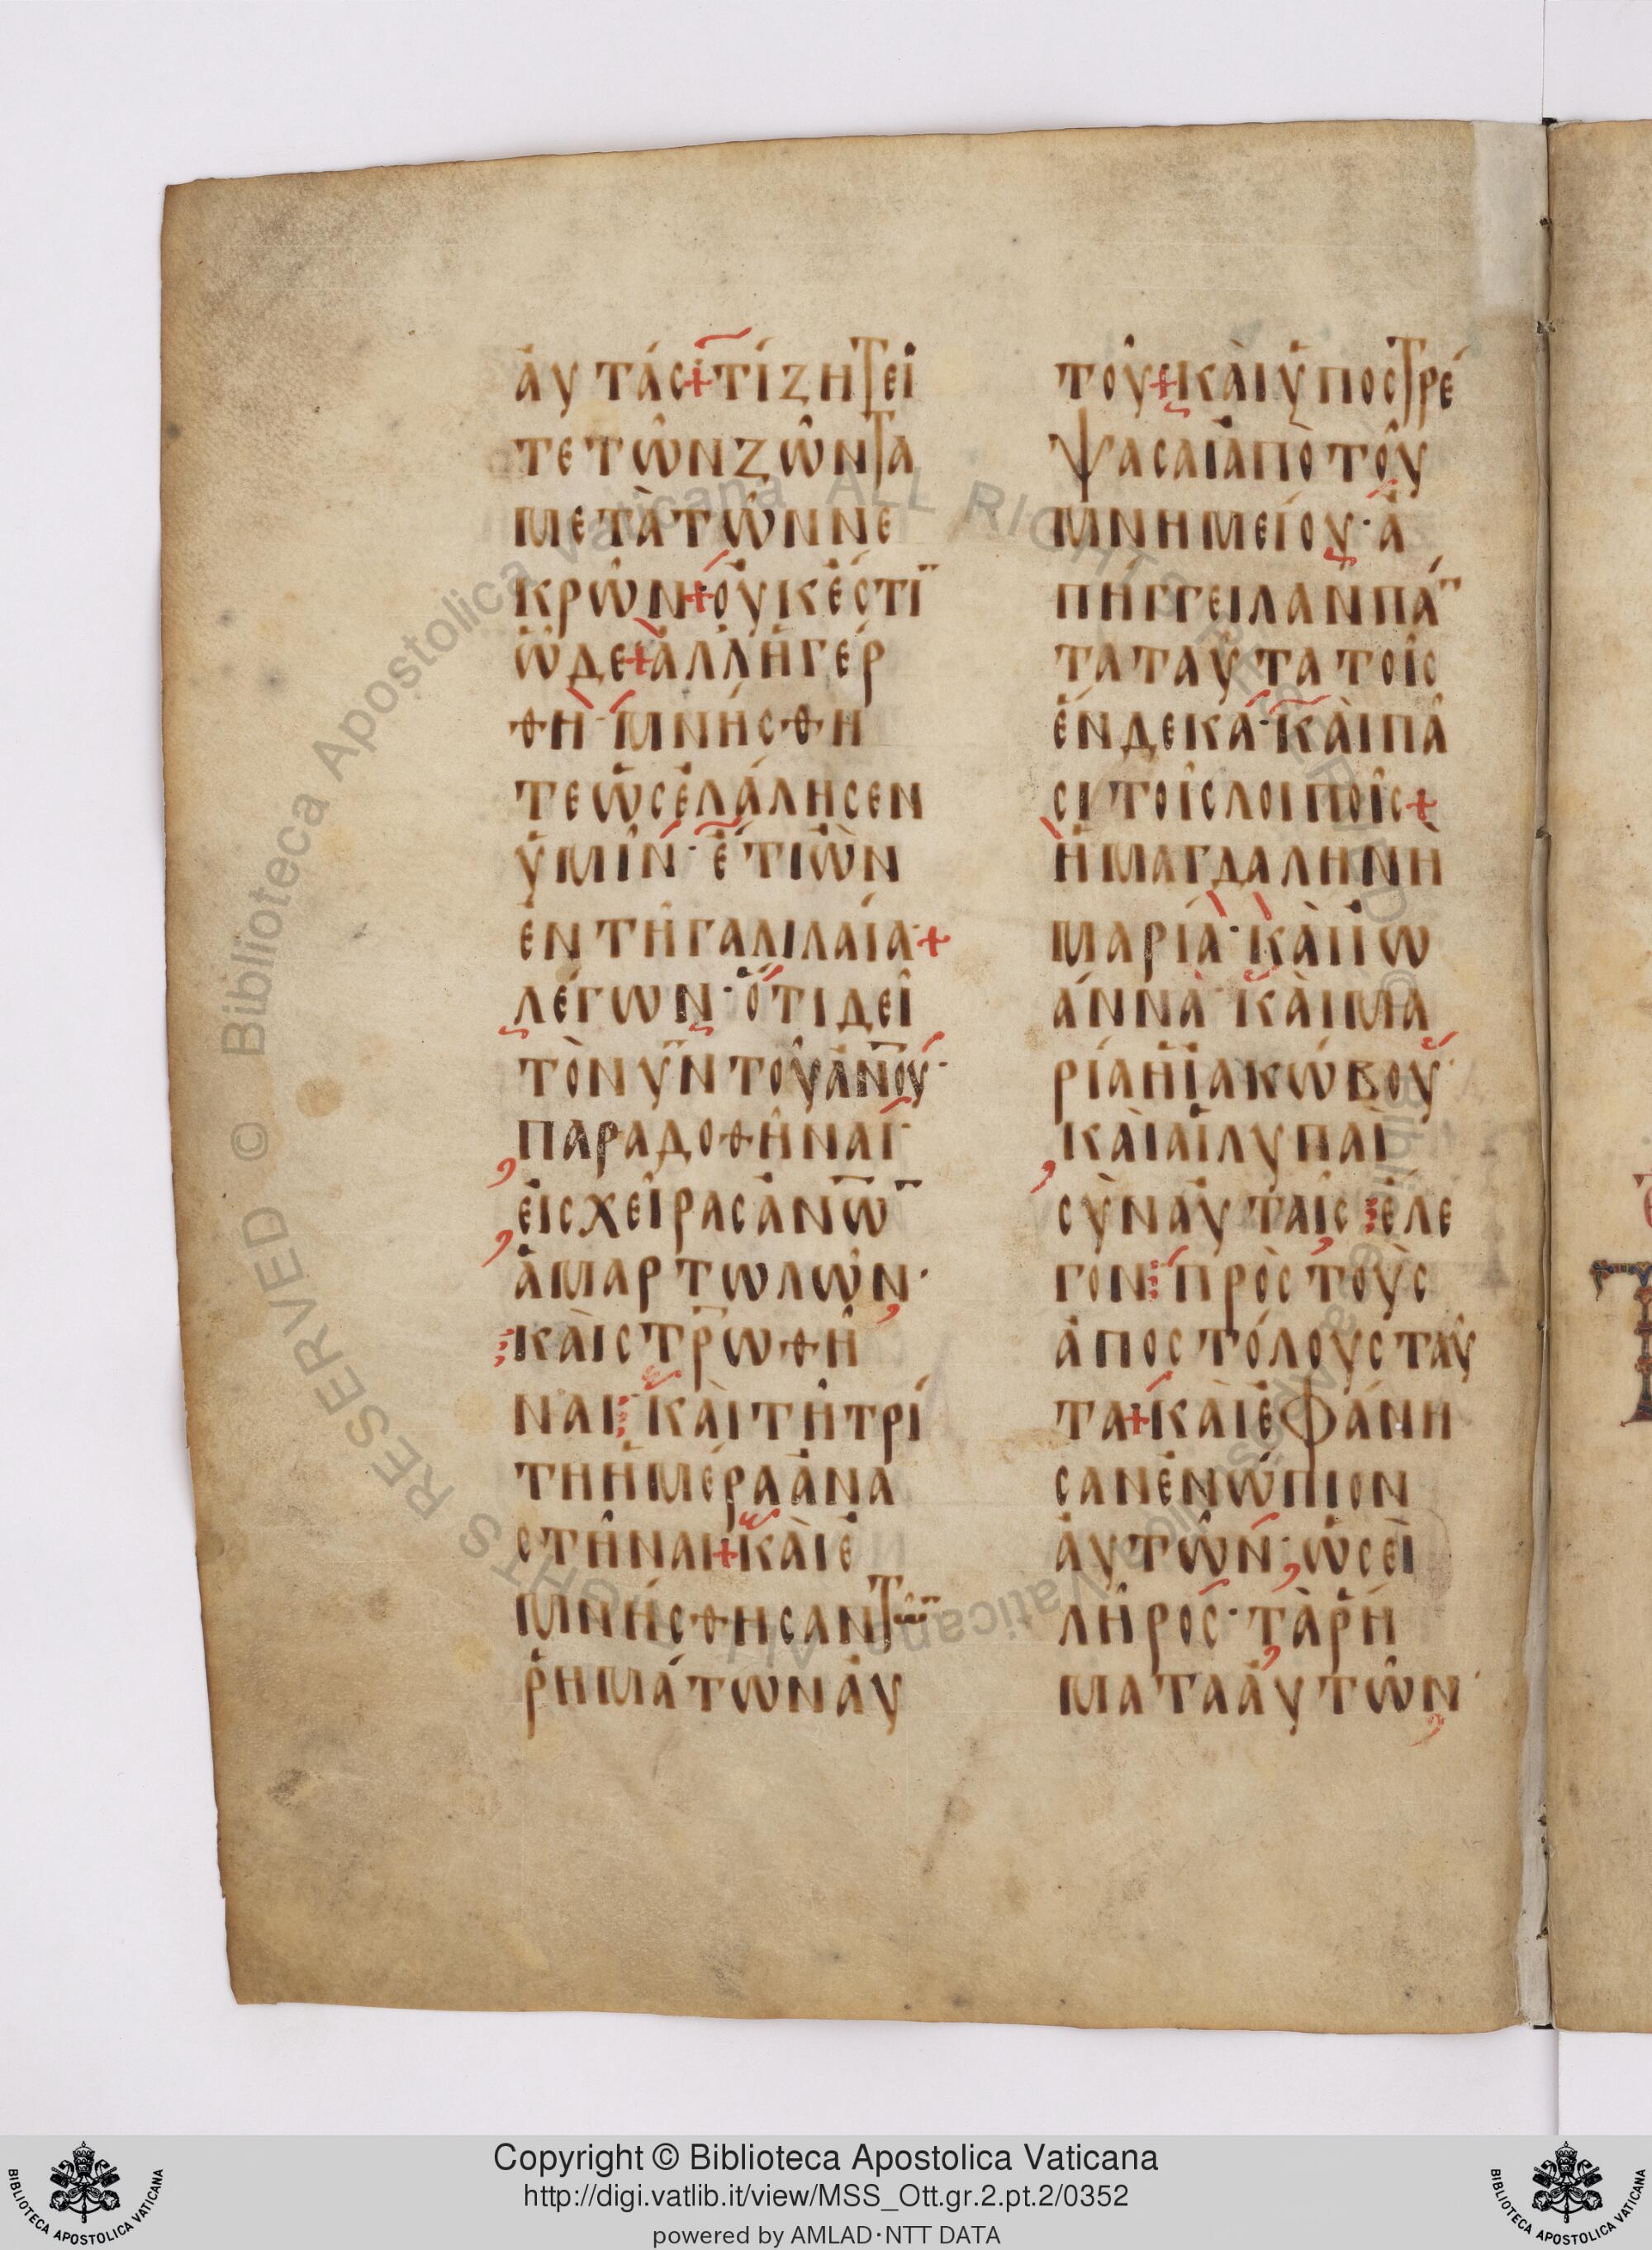 ἀυτάς + τί ζητεῖ
τε τῶν ζῶντα
μετὰ τῶν νε
κρῶν + οὐκ ἔστῑ
ὧδε + ἀλλ ἠγέρ
θη · μνήσθη
τε ὡς ἐλάλησεν
ὑμῖν · ἔτι ὢν
ἐν τῆ γαλιλαία · +
λέγων · ὅτι δεῖ
τὸν ῡν τοῦ ᾱνου ·
παραδοθῆναι ·
εἰς χεῖρας ἀνω̄
ἁμαρτωλῶν ·
καὶ στ̄ρωθῆ
ναι · καὶ τῆ τρί
τη ἡμέρα ἀνα
στῆναι + καὶ ἐ
μνήσθησαν τω̄
ῥημάτων ἀυ
τοῦ + καὶ ὑποστρέ
ψασαι ἀπὸ τοῦ
μνημείου · ἀ
πήγγειλαν πά̄
τα ταῦτα τοῖς
ἕνδεκα · καὶ πᾶ
σι τοῖς λοιποῖς +
ἡ μαγδαληνὴ
μαρία · καὶ ἰω
άννα · καὶ μα
ρία ἡ ἰακώβου ·
καὶ αἱ λυπαὶ
σὺν αὐταῖς ἔλε
γον πρὸς τοὺς
ἀποστόλους ταῦ
τα + καὶ ἐφάνη
σαν ἐνώπιον
ἀυτῶν · ὡσεὶ
λῆρος · τὰ ῥή
ματα ἀυτῶν ·
Copyright © Biblioteca Apostolica Vaticana
http://digi.vatlib.it/view/MSS_Ott.gr.2.pt.2/0352
powered by AMLAD·NTT DATA
BIBLIOTECA APOSTOLICA VATICANA
BIBLIOTECA APOSTOLICA VATICANA